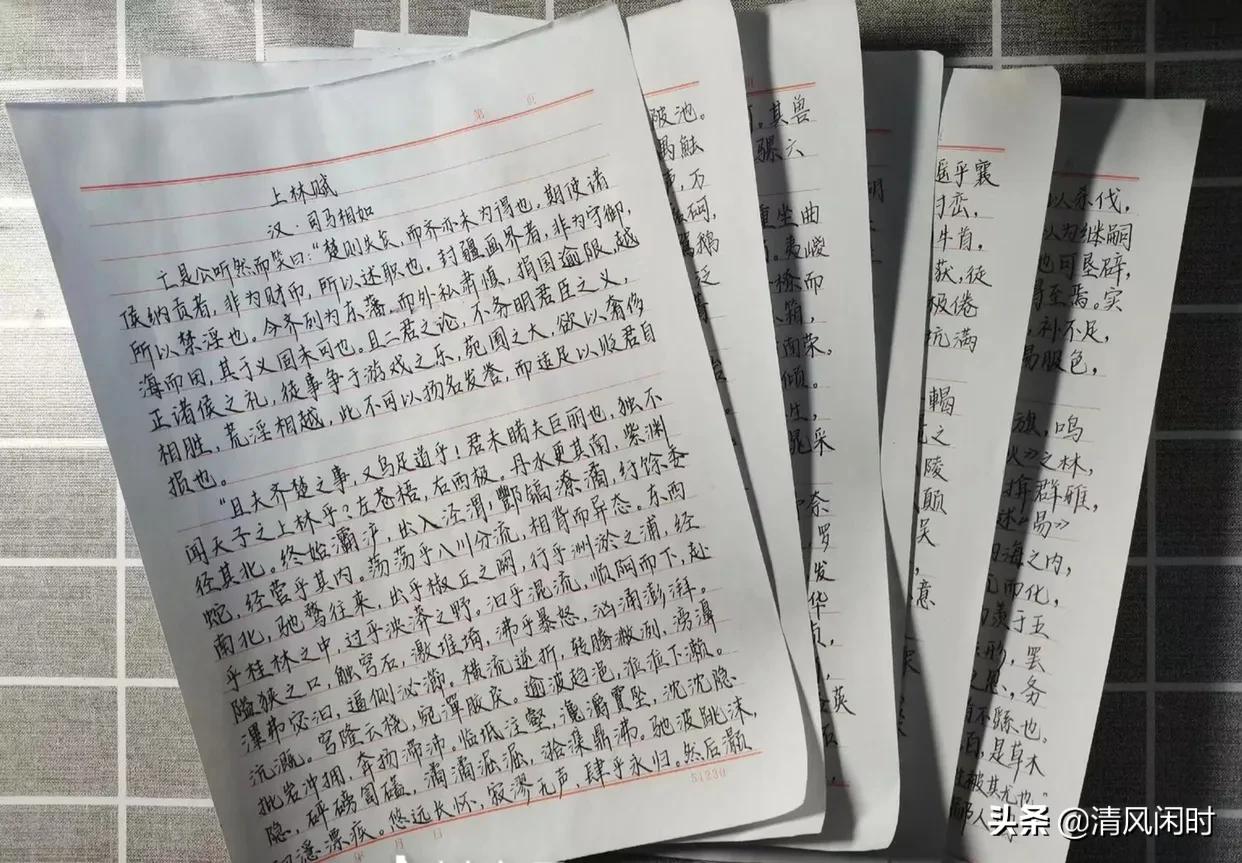 第 页
上林赋
汉·司马相如
亡是公听然而笑曰:“楚则失矣,而齐亦未为得也。夫使诸
侯纳贡者,非为财币,所以述职也。封疆画界者,非为守御,
所以禁淫也。今齐列为东藩,而外私肃慎,捐国逾限,越
海而田,其于义固未可也。且二君之论,不务明君臣之义,
正诸侯之礼,徒事争于游戏之乐,苑囿之大,欲以奢侈
相胜,荒淫相越,此不可以扬名发誉,而适足以贬君自
损也。
“且夫齐楚之事,又乌足道乎!君未睹夫巨丽也,独不
闻天子之上林乎?左苍梧,右西极。丹水更其南,紫渊
径其北。终始灞浐,出入泾渭;酆镐潦潏,纡馀委
蛇,经营乎其内。荡荡乎八川分流,相背而异态。东西
南北,驰骛往来,出乎椒丘之阙,行乎洲淤之浦,经
乎桂林之中,过乎泱漭之野。汩乎混流,顺阿而下,赴
隘狭之口,触穹石,激堆埼,沸乎暴怒,汹涌澎湃。
滭弗宓汩,逼侧泌瀄。横流逆折,转腾潎洌,滂濞
沆溉。穹隆云桡,宛潬胶戾。逾波趋浥,涖涖下濑。
批岩冲拥,奔扬滞沛。临坻注壑,瀺灂霣坠,沈沈隐
隐,砰磅訇磕,潏潏淈淈,湁潗鼎沸。驰波跳沫,
漂疾。悠远长怀,寂漻无声,肆乎永归。然后灏
51230
月 日
陂池。
万
其兽
骡六
坐曲
而
南荣。
采
奈
罗
发
华
英
乎襄
峦,
牛首,
获,徒
极倦
抗满
輵
之
陵
颠
吴
意
以杀伐,
以为继嗣
也可垦辟,
至焉。实
补不足,
易服色,
旗,鸣
之林,
揜群雅,
述《易》
海之内,
而化,
羡于五
形,罢
之恩,务
不繇也,
是草木
被其尤也。”
人
头条 @清风闲时